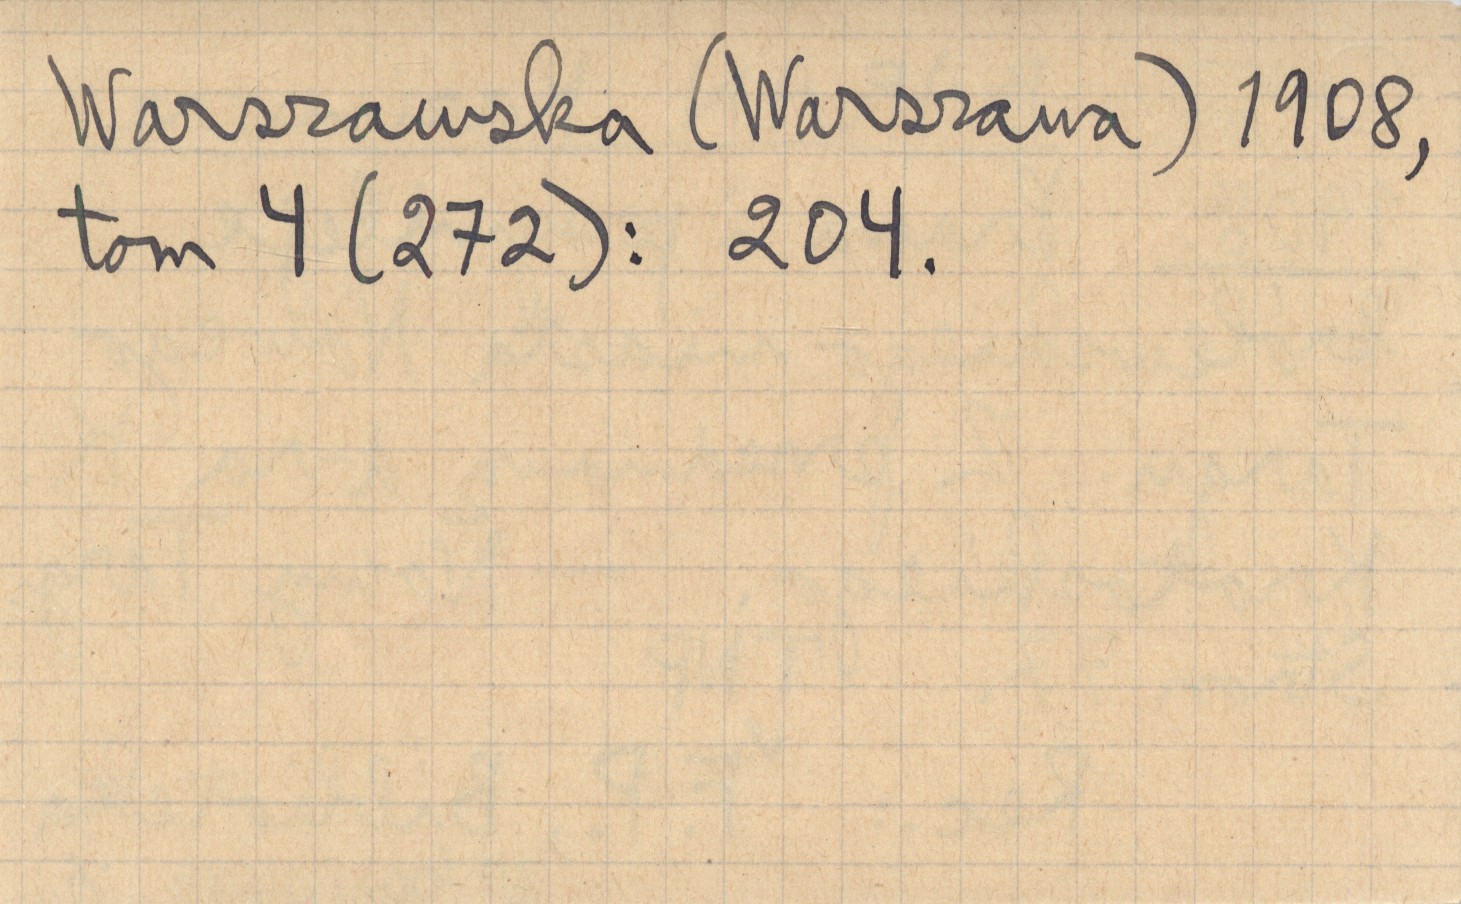 Warszawska (Warszawa) 1908,
tom 4 (272): 204.